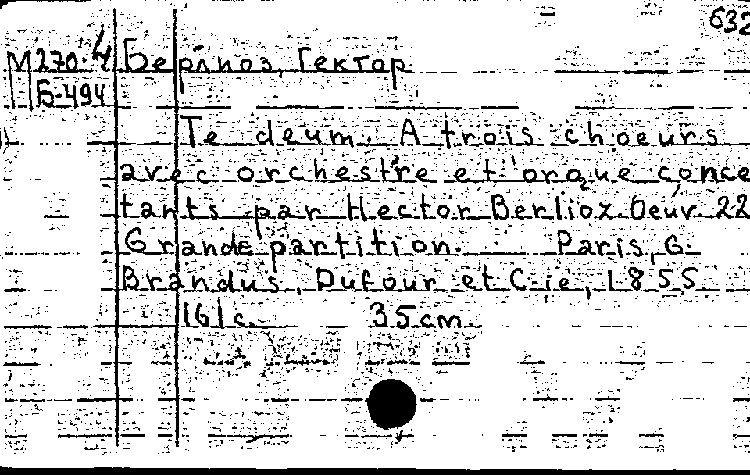 632
М270.4 Берлиоз, Гектар
Б-494
Te deum. A trois choeurs
avec orchestre et orque conce
tants par Hector Berlioz. Oeuv. 22
Grande partition. Paris, G.
Brandus, Dufour et C-ie, 1855
161 с. 35 cm.